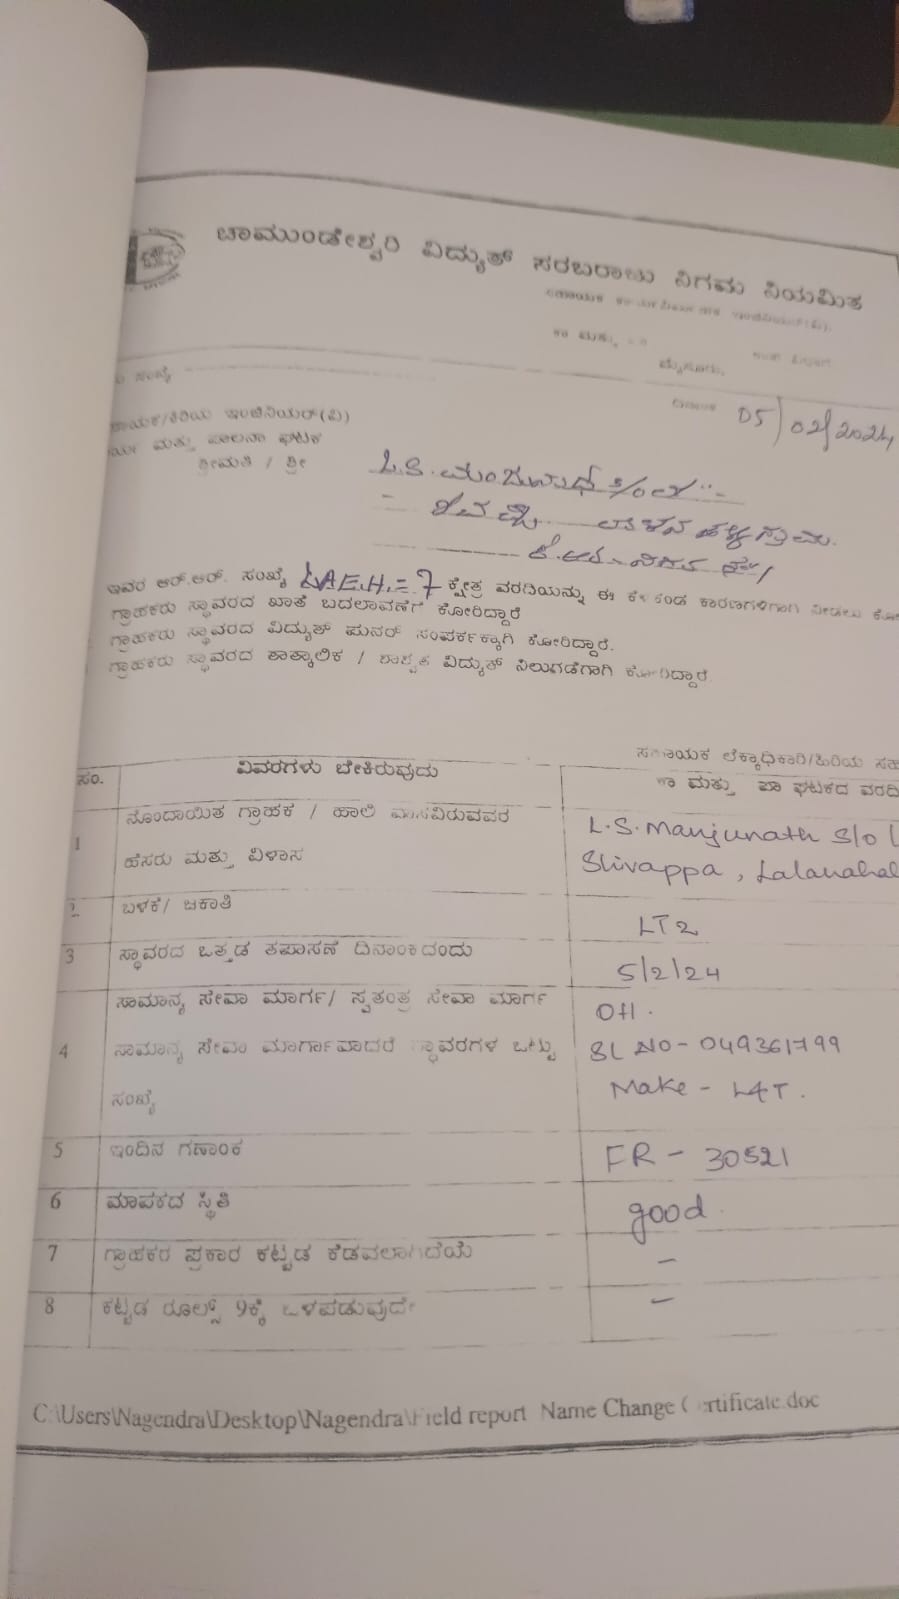 ಚಾಮುಂಡೇಶ್ವರಿ ವಿದ್ಯುತ್ ಸರಬರಾಜು ನಿಗಮ ನಿಯಮಿತ
ಮೈಸೂರು.
ಸಂಖ್ಯೆ
ದಿನಾಂಕ 05/02/2024
ಇಂಜಿನಿಯರ್(ವಿ)
ಮತ್ತು ಪಾಲನಾ ಘಟಕ
ಶ್ರೀಮತಿ / ಶ್ರೀ L.S. ಮಂಜುನಾಥ್ S/o
ಇವರ ಆರ್.ಆರ್. ಸಂಖ್ಯೆ LAEH=7 ಕ್ಷೇತ್ರ ವರದಿಯನ್ನು ಈ ಕೆಳಕಂಡ ಕಾರಣಗಳಿಗಾಗಿ ನೀಡಲು
ಗ್ರಾಹಕರು ಸ್ಥಾವರದ ಖಾತೆ ಬದಲಾವಣೆಗೆ ಕೋರಿದ್ದಾರೆ
ಗ್ರಾಹಕರು ಸ್ಥಾವರದ ವಿದ್ಯುತ್ ಪುನರ್ ಸಂಪರ್ಕಕ್ಕಾಗಿ ಕೋರಿದ್ದಾರೆ.
ಗ್ರಾಹಕರು ಸ್ಥಾವರದ ತಾತ್ಕಾಲಿಕ / ಶಾಶ್ವತ ವಿದ್ಯುತ್ ನಿಲುಗಡೆಗಾಗಿ ಕೋರಿದ್ದಾರೆ
ಸಂ. ವಿವರಗಳು ಬೇಕಿರುವುದು ಸಹಾಯಕ ಲೆಕ್ಕಾಧಿಕಾರಿ/ಹಿರಿಯ
ಕಾ ಮತ್ತು ಪಾ ಘಟಕದ
1 ನೊಂದಾಯಿತ ಗ್ರಾಹಕ / ಹಾಲಿ ವಾಸವಿರುವವರ L.S. Manjunath S/o
ಹೆಸರು ಮತ್ತು ವಿಳಾಸ Shivappa,
2 ಬಳಕೆ/ ಜಕಾತಿ LT2
3 ಸ್ಥಾವರದ ಒತ್ತಡ ತಪಾಸಣೆ ದಿನಾಂಕದಂದು 5/2/24
ಸಾಮಾನ್ಯ ಸೇವಾ ಮಾರ್ಗ/ ಸ್ವತಂತ್ರ ಸೇವಾ ಮಾರ್ಗ OH.
4 ಸಾಮಾನ್ಯ ಸೇವಾ ಮಾರ್ಗವಾದರೆ ಸ್ಥಾವರಗಳ ಒಟ್ಟು SL NO - 049361799
ಸಂಖ್ಯೆ Make - L&T.
5 ಇಂದಿನ ಗಣಾಂಕ FR - 30521
6 ಮಾಪಕದ ಸ್ಥಿತಿ good.
7 ಗ್ರಾಹಕರ ಪ್ರಕಾರ ಕಟ್ಟಡ ಕೆಡವಲಾಗಿದೆಯೆ -
8 ಕಟ್ಟಡ ರೂಲ್ಸ್ 9ಕ್ಕೆ ಒಳಪಡುವುದೇ -
C:\Users\Nagendra\Desktop\Nagendra\Field report Name Change Certificate.doc